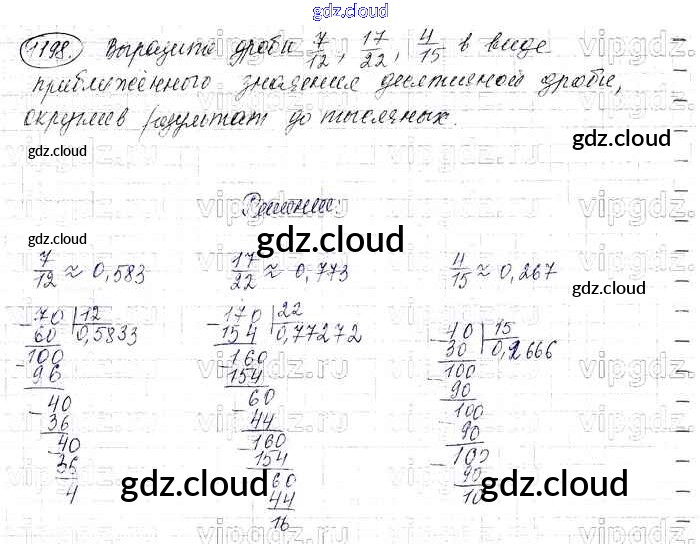 gdz.cloud
1198. Выразите дроби 7/12, 17/22, 4/15 в виде
приближённого значения десятичной дроби,
округлив результат до тысячных.
gdz.cloud
gdz.cloud
vipgdz.ru
Решение:
gdz.cloud
gdz.cloud
7/12 ≈ 0,583 17/22 ≈ 0,773 4/15 ≈ 0,267
gdz.cloud
70 | 12 170 | 22 40 | 15
60 0,5833 154 0,77272 30 0,2666
100 160 100
96 154 90
40 60 100
36 44 90
40 160 100
36 154 90
4 60 10
44
16
gdz.cloud
gdz.cloud